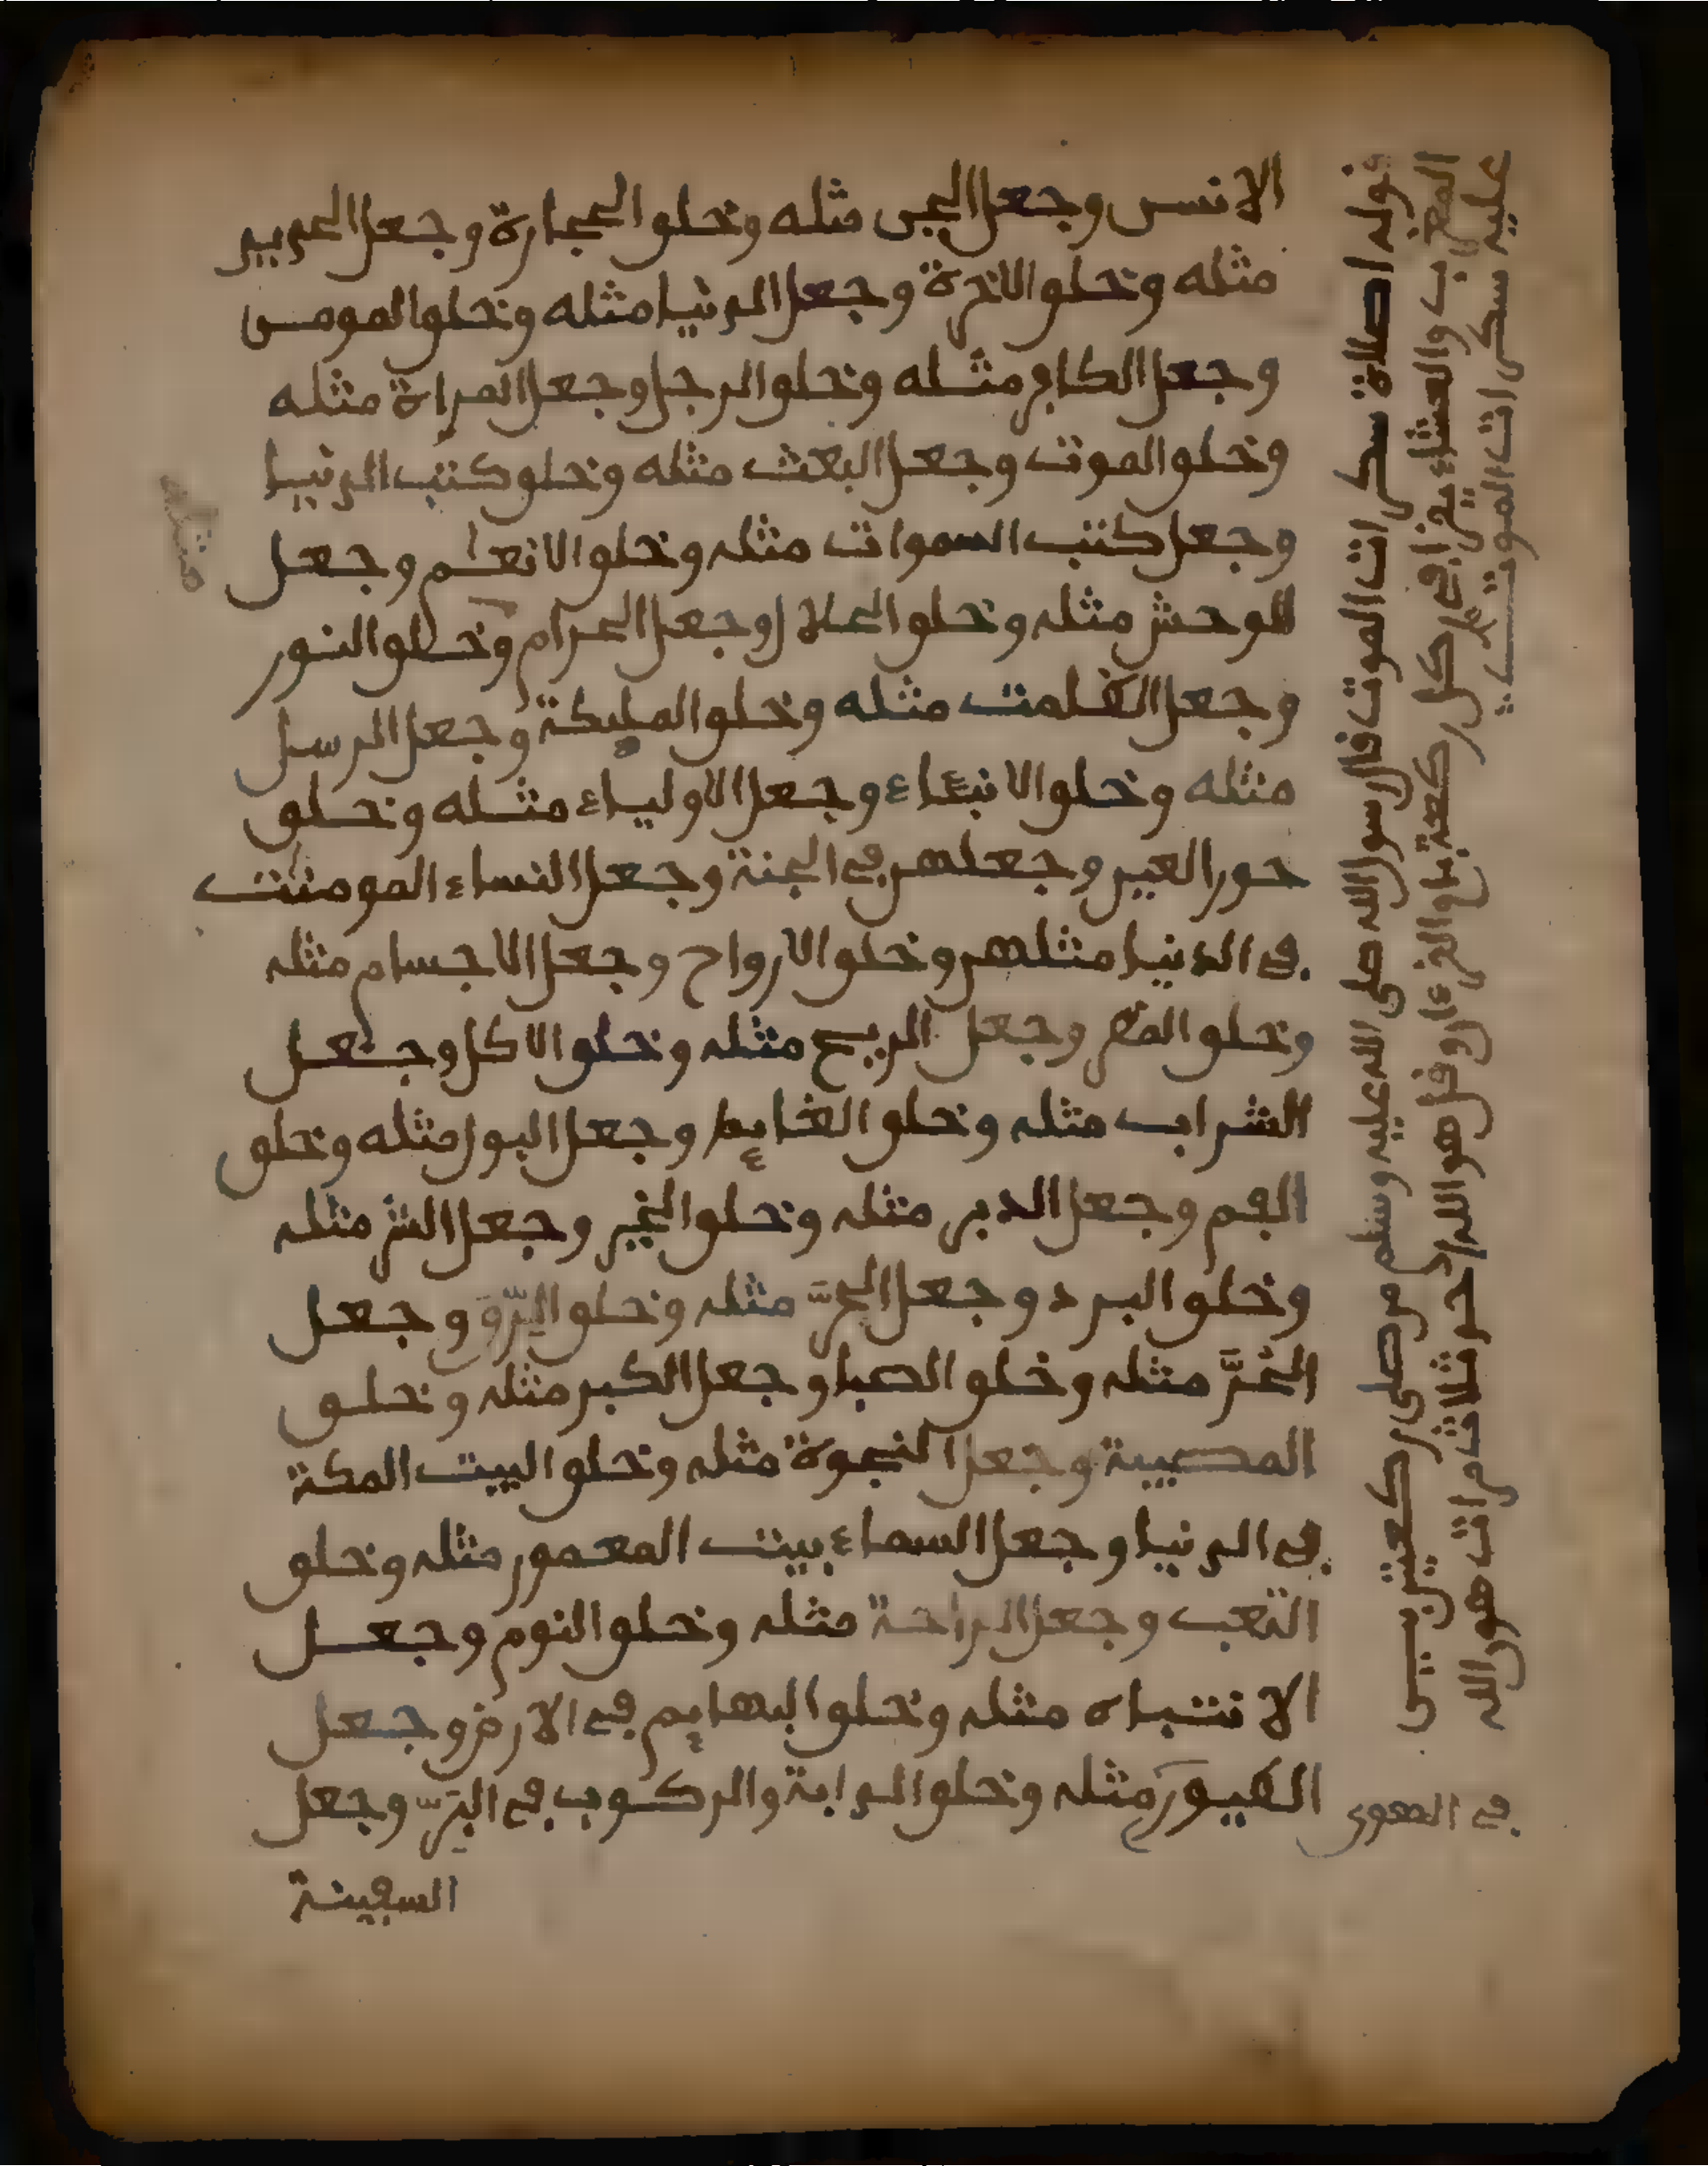 الانس وجعل الجن مثله وخلق الحجارة وجعل الحديد
مثله وخلق الاخرة وجعل الدنيا مثله وخلق المومن
وجعل الكافر مثله وخلق الرجل وجعل المراة مثله
وخلق الموت وجعل البعث مثله وخلق كتب الدنيا
وجعل كتب السموات مثله وخلق الانعام وجعل
الوحش مثله وخلق الحلال وجعل الحرام وخلق النور
وجعل الظلمت مثله وخلق المليكة وجعل الرسل
مثله وخلق الانبياء وجعل الاولياء مثله وخلق
حور العين وجعلهن في الجنة وجعل النساء المومنت
في الدنيا مثلهن وخلق الارواح وجعل الاجسام مثله
وخلق المطر وجعل الريح مثله وخلق الاكل وجعل
الشراب مثله وخلق الغايط وجعل البول مثله وخلق
الفم وجعل الدبر مثله وخلق الخير وجعل الشر مثله
وخلق البرد وجعل الحرّ مثله وخلق وجعل
مثله وخلق الصبا وجعل الكبر مثله وخلق
المصيبة وجعل النجوة مثله وخلق البيت المكة
في الدنيا وجعل السماء بيت المعمور مثله وخلق
التعب وجعل الراحة مثله وخلق النوم وجعل
الانتباه مثله وخلق البهايم في الارض وجعل
الطيور مثله وخلق الدابة والركوب في البرّ وجعل
السفينة
قوله اصلاة سكرات الموت قال رسول الله صلى الله عليه وسلم من صلى ركعتين بين
المغرب والعشاء يقرا في كل ركعة بام القرءان وقل هو الله احد ثلاث مرات هون الله
عليه سكرات الموت